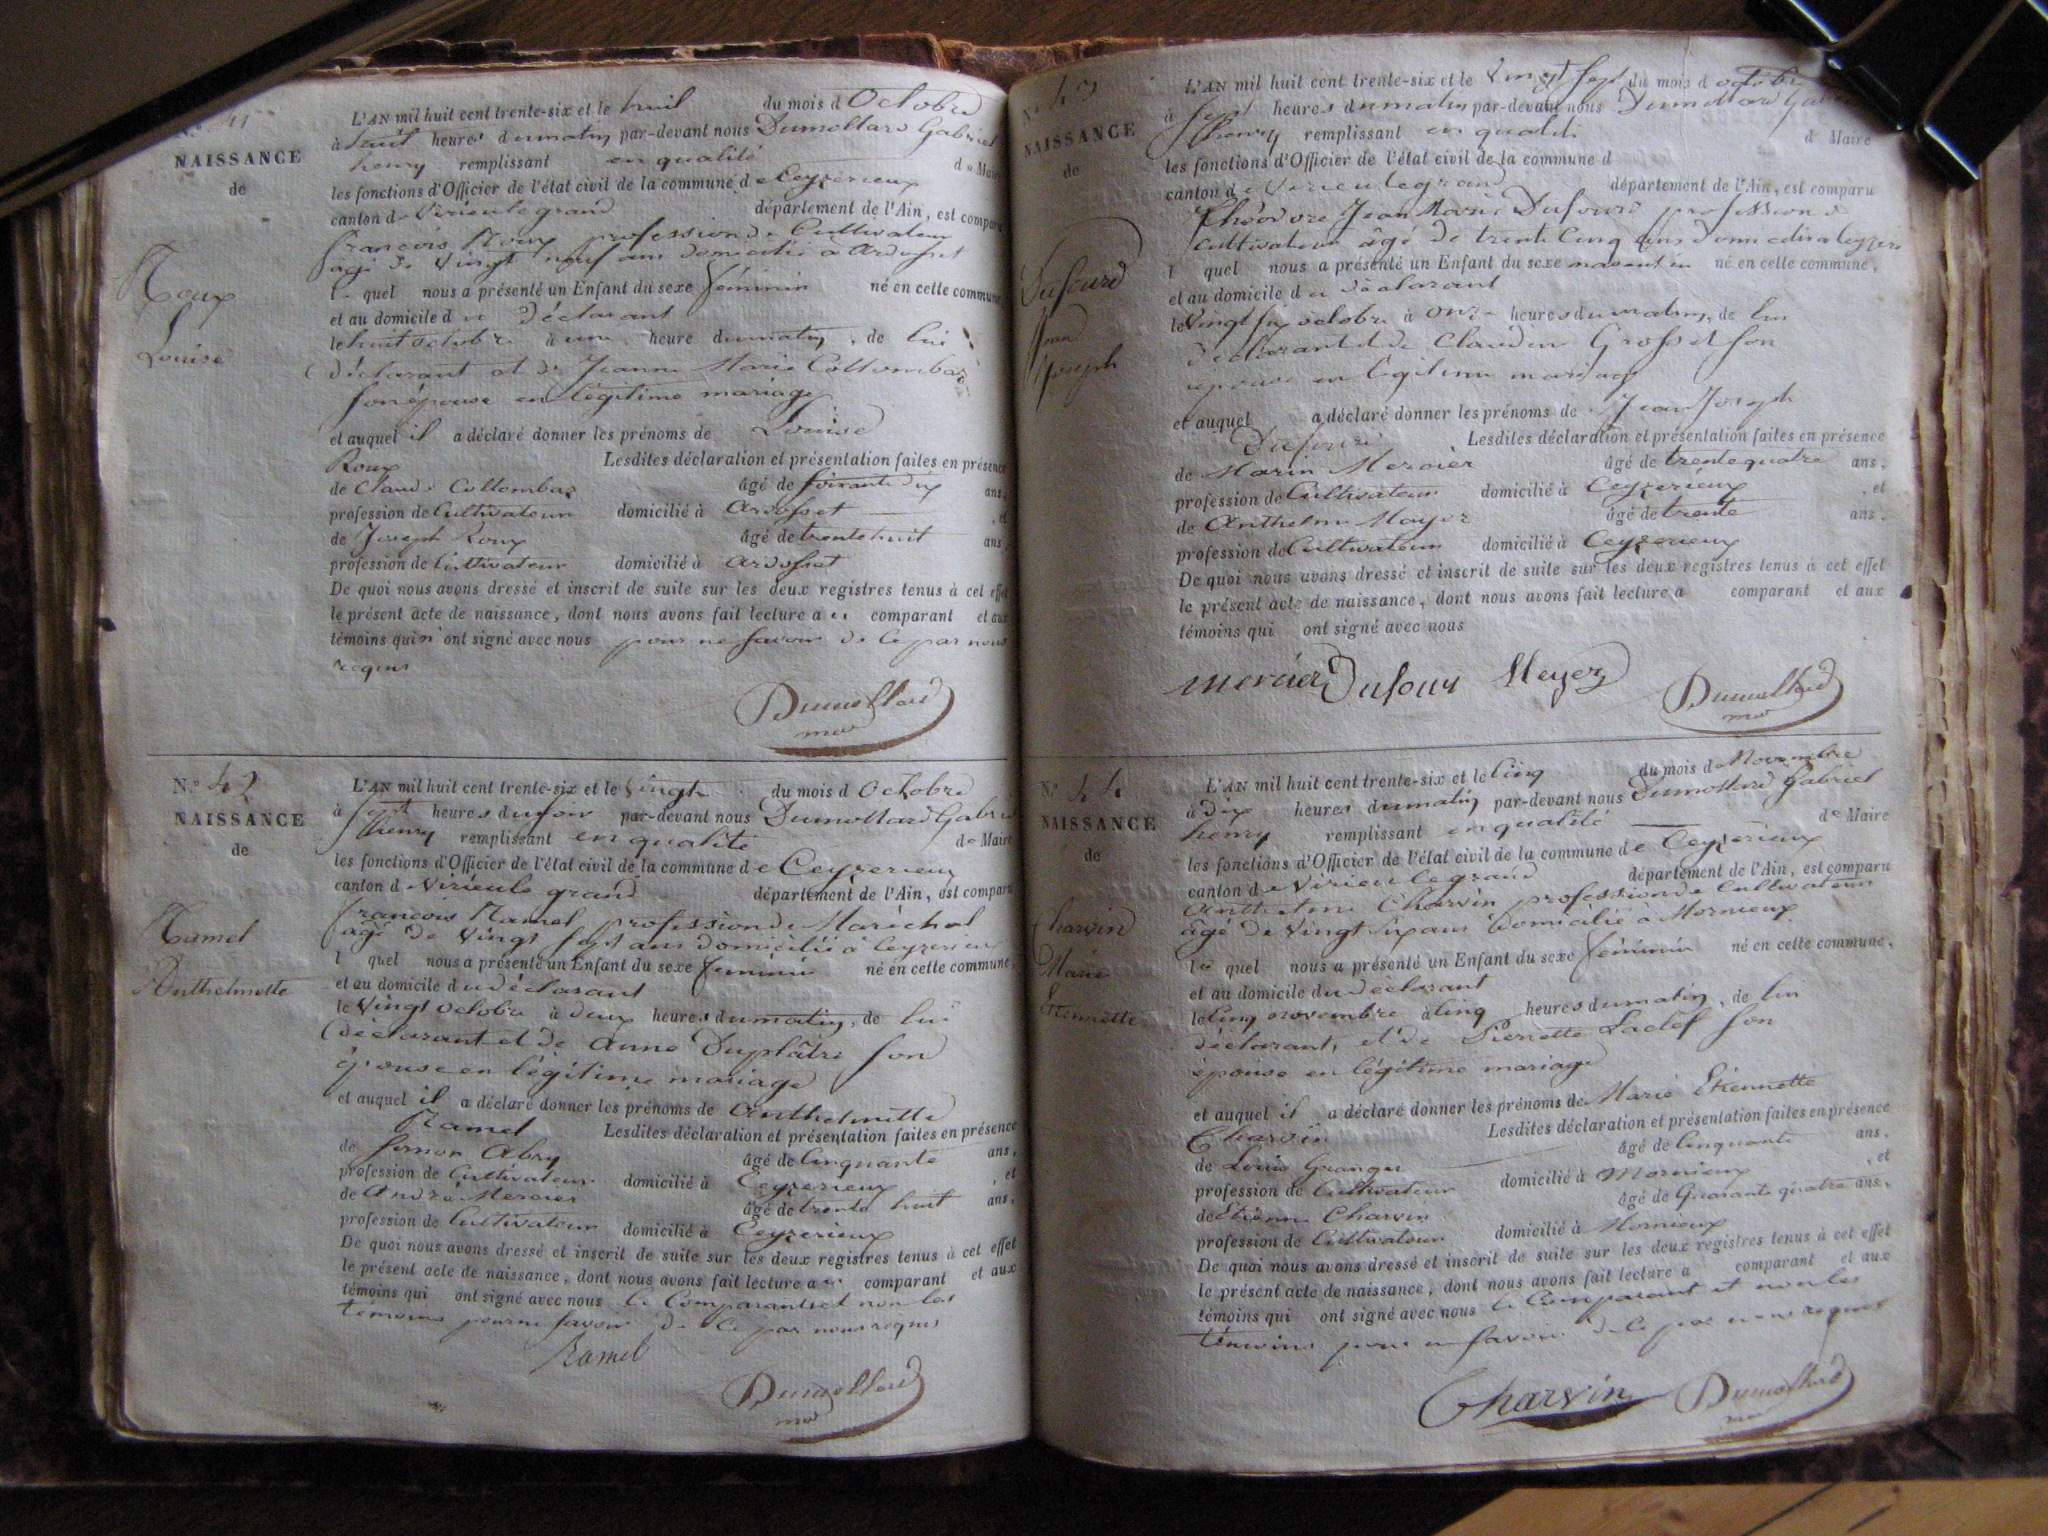 N.° 41
NAISSANCE
de
Roux
Louise
L'AN mil huit cent trente-six et le huit du mois d Octobre
à huit heures du matin par-devant nous Dumollard Gabriel
henry remplissant en qualité de Maire
les fonctions d'Officier de l'état civil de la commune de Ceyzerieux
canton de Virieu le grand département de l'Ain, est comparu
francois Roux profession de Cultivateur
agé de Vingt neuf ans domicilié à Ardosset
l quel nous a présenté un Enfant du sexe féminin né en cette commune
et au domicile du déclarant
le huit octobre à une heure du matin, de lui
déclarant et de Jeanne Marie Collombaz
son épouse en légitime mariage
et auquel il a déclaré donner les prénoms de Louise
Roux Lesdites déclaration et présentation faites en présence
de Claude Collombaz âgé de soixante dix ans,
profession de Cultivateur domicilié à Ardosset , et
de Joseph Roux âgé de trente huit ans,
profession de Cultivateur domicilié à Ardosset
De quoi nous avons dressé et inscrit de suite sur les deux registres tenus à cet effet
le présent acte de naissance, dont nous avons fait lecture au comparant et aux
témoins qui n'ont signé avec nous pour ne savoir de ce par nous
requis
Dumollard
N.° 42
NAISSANCE
de
Ramel
Anthelmette
L'AN mil huit cent trente-six et le Vingt du mois d Octobre
à sept heures du soir par-devant nous Dumollard Gabriel
henry remplissant en qualité de Maire
les fonctions d'Officier de l'état civil de la commune de Ceyzerieux
canton de Virieu le grand département de l'Ain, est comparu
francois Ramel profession de Maréchal
agé de Vingt sept ans domicilié à Ceyzerieux
l quel nous a présenté un Enfant du sexe féminin né en cette commune,
et au domicile du déclarant
le Vingt octobre à deux heures du matin, de lui
déclarant et de Anne Duplâtre son
épouse en légitime mariage
et auquel il a déclaré donner les prénoms de Anthelmette
Ramel Lesdites déclaration et présentation faites en présence
de Simon Abry âgé de Cinquante ans,
profession de Cultivateur domicilié à Ceyzerieux , et
de André Mercier âgé de trente huit ans,
profession de Cultivateur domicilié à Ceyzerieux
De quoi nous avons dressé et inscrit de suite sur les deux registres tenus à cet effet
le présent acte de naissance, dont nous avons fait lecture au comparant et aux
témoins qui ont signé avec nous le Comparant et non les
témoins pour ne savoir de ce par nous requis
Ramel
Dumollard
N.° 43
NAISSANCE
de
Dufourd
Jean
Joseph
L'AN mil huit cent trente-six et le Vingt sept du mois d octobre
à sept heures du matin par-devant nous Dumollard Gabriel
henry remplissant en qualité d Maire
les fonctions d'Officier de l'état civil de la commune d
canton de Virieu le grand département de l'Ain, est comparu
Théodore Jean Marie Dufourd profession de
cultivateur âgé de trente Cinq ans domicilié à Ceyzerie
l quel nous a présenté un Enfant du sexe masculin né en cette commune,
et au domicile du déclarant
le Vingt six octobre à onze heures du matin, de lui
déclarant et de Claudine Grosset son
épouse en légitime mariage
et auquel a déclaré donner les prénoms de Jean Joseph
Dufourd Lesdites déclaration et présentation faites en présence
de Marin Mercier âgé de trente quatre ans,
profession de Cultivateur domicilié à Ceyzerieux , et
de Anthelme Mayer âgé de trente ans,
profession de Cultivateur domicilié à Ceyzerieux
De quoi nous avons dressé et inscrit de suite sur les deux registres tenus à cet effet
le présent acte de naissance, dont nous avons fait lecture a comparant et aux
témoins qui ont signé avec nous
mercier Dufour Meyer Dumollard
N.° 44
NAISSANCE
de
Charvin
Marie
Etiennette
L'AN mil huit cent trente-six et le Cinq du mois d Novembre
à dix heures du matin par-devant nous Dumollard Gabriel
henry remplissant en qualité de Maire
les fonctions d'Officier de l'état civil de la commune de Ceyzerieux
canton de Virieu le grand département de l'Ain, est comparu
Anthelme Charvin profession de Cultivateur
âgé de Vingt six ans domicilié à Mornieux
le quel nous a présenté un Enfant du sexe féminin né en cette commune,
et au domicile du déclarant
le Cinq novembre à Cinq heures du matin, de lui
déclarant, et de Pierrette Laclef son
épouse en légitime mariage
et auquel il a déclaré donner les prénoms de Marie Etiennette
Charvin Lesdites déclaration et présentation faites en présence
de Louis Granger âgé de Cinquante ans,
profession de Cultivateur domicilié à Mornieux , et
de Etienne Charvin âgé de Quarante quatre ans,
profession de Cultivateur domicilié à Mornieux
De quoi nous avons dressé et inscrit de suite sur les deux registres tenus à cet effet
le présent acte de naissance, dont nous avons fait lecture a comparant et aux
témoins qui ont signé avec nous le Comparant et non les
témoins pour ne savoir de ce par nous requis
Charvin Dumollard